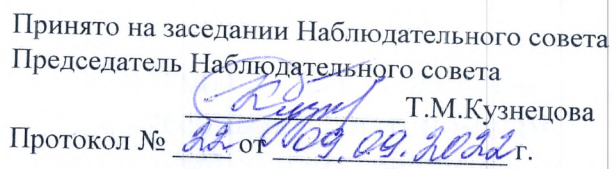 Принято на заседании Наблюдательного совета
Председатель Наблюдательного совета
Т.М.Кузнецова
Протокол № 22 от 09.09.2022г.